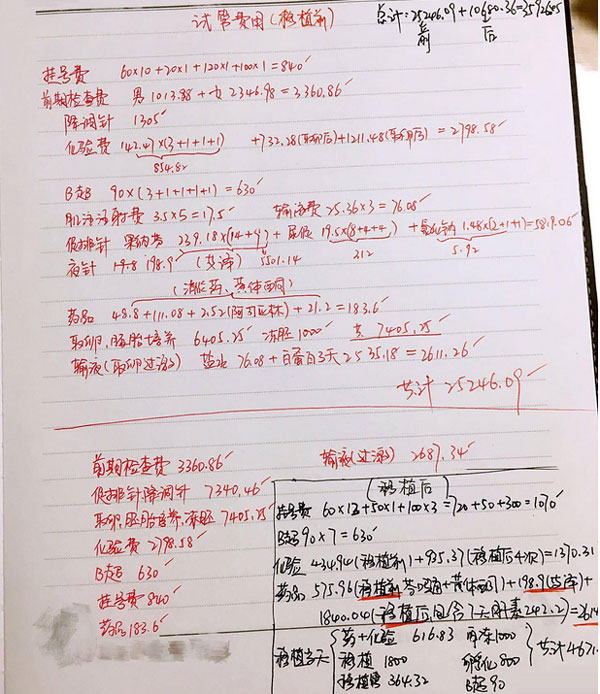 试管费用(移植前)
总计:25246.09+10680.36=35926.45
前 后
挂号费 60×10+20×1+120×1+100×1=840
前期检查费 男1013.88+女2346.98=3360.86
降调针 1305
化验费 142.47×(3+1+1+1) +732.28(取卵后)+1211.48(取卵后)=2798.58
854.82
B超 90×(3+1+1+1+1)=630
肌注注射费 3.5×5=17.5 输液费 25.36×3=76.08
促排针 果纳芬 239.18×(14+9)+尿促 19.5×(8+4+4)+氯化钠 1.48×(2+1+1)=5819.06
夜针 19.8 198.9 (艾泽) 5501.14 312 5.92
(消炎药、黄体酮)
药品 48.8+111.08+2.52(阿司匹林)+21.2=183.6
取卵,胚胎培养 6405.25 冻胚1000 共 7405.25
输液(取卵过激) 盐水 76.08+白蛋白3天 2535.18=2611.26
共计 25246.09
前期检查费 3360.86
输液(过激) 2687.34
促排针,降调针 7340.46
取卵,胚胎培养,冻胚 7405.25
化验费 2798.58
B超 630
挂号费 840
药品 183.6
移植后
挂号费 60×12+50×1+100×3=720+50+300=1070
B超 90×7=630
化验 434.94(移植前)+935.37(移植后4次)=1370.31
药品 575.96(移植前 +黄体酮)+198.9(艾泽)+
1840.04(移植后,包含7天肝素242.2)=2614
移植当天 药+化验 616.83 解冻1000
移植 1800 孵化800 共计4671
移植费 364.32 B超90